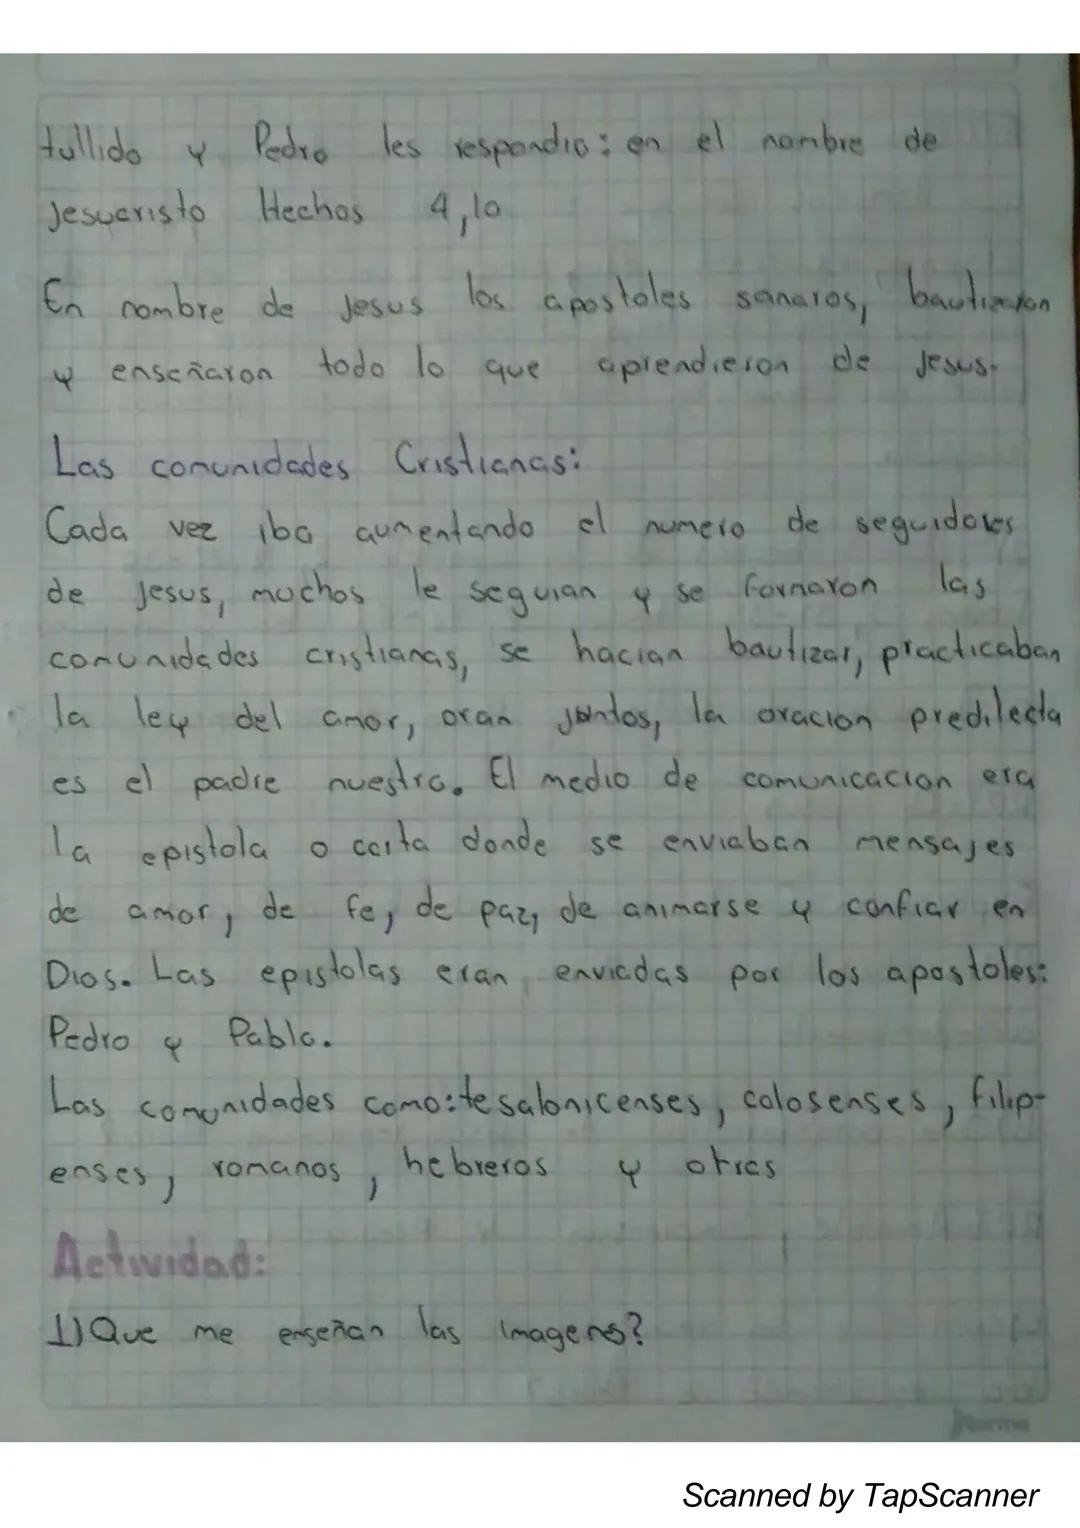 tullido y Pedro les respondio: en el nombre de
Jesucristo Hechos 4,10
En nombre de Jesus los apostoles sanaros, bautizaron
y enseñaron todo lo que aprendieron de Jesus.
Las comunidades Cristianas:
Cada vez iba aumentando el numero de seguidores
de Jesus, muchos le seguian y se fornaron las
comunidades cristianas, se hacian bautizar, practicaban
la ley del amor, oran juntos, la oracion predilecta
es el padre nuestro. El medio de comunicacion era
la epistola o carta donde se enviaban mensajes
de amor, de fe, de paz, de animarse y confiar en
Dios. Las epistolas eran enviadas por los apostoles:
Pedro y Pablo.
Las comunidades como: tesalonicenses, colosenses, filip-
enses, romanos, hebreros y otros
Actividad:
1) Que me enseñan las imagenes?
Norma
Scanned by TapScanner